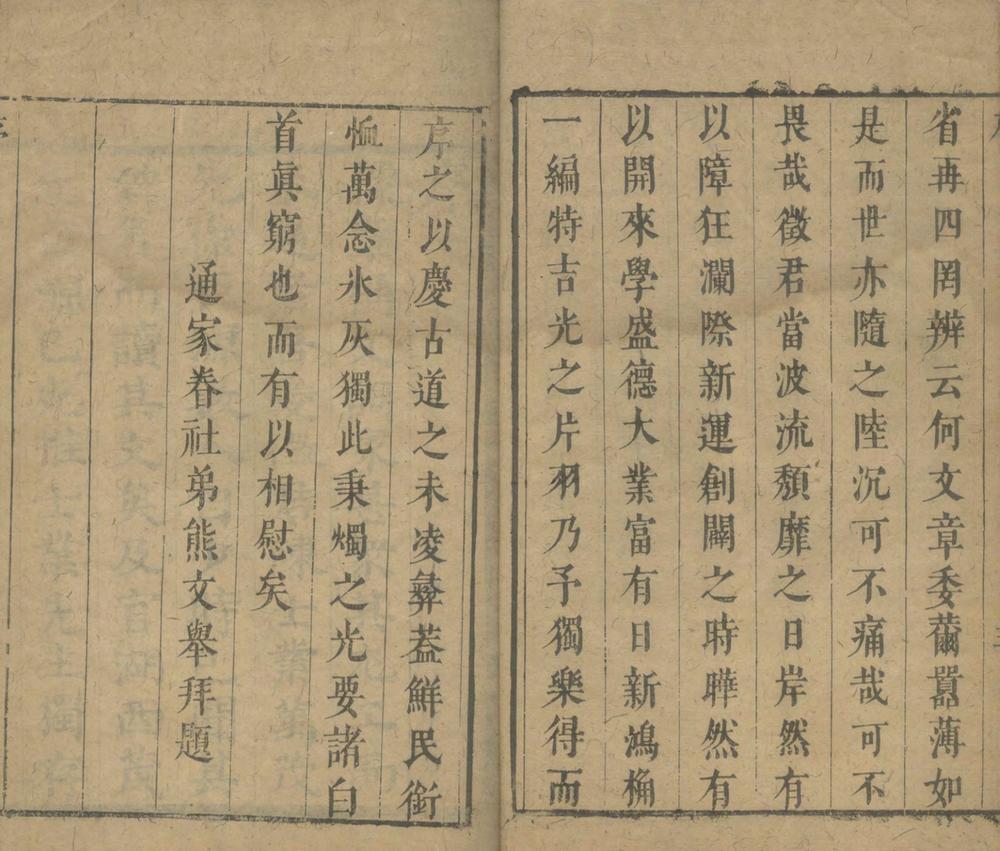 省再四罔辨云何文章委薾嚣薄如
是而世亦隨之陸沉可不痛哉可不
畏哉徵君當波流頽靡之日岸然有
以障狂瀾際新運創闢之時曄然有
以開來學盛德大業富有日新鴻桷
一編特吉光之片羽乃予獨樂得而
序之以慶古道之未凌彝蓋鮮民銜
恤萬念氷灰獨此秉燭之光要諸白
首眞窮也而有以相慰矣
通家眷社弟熊文舉拜題